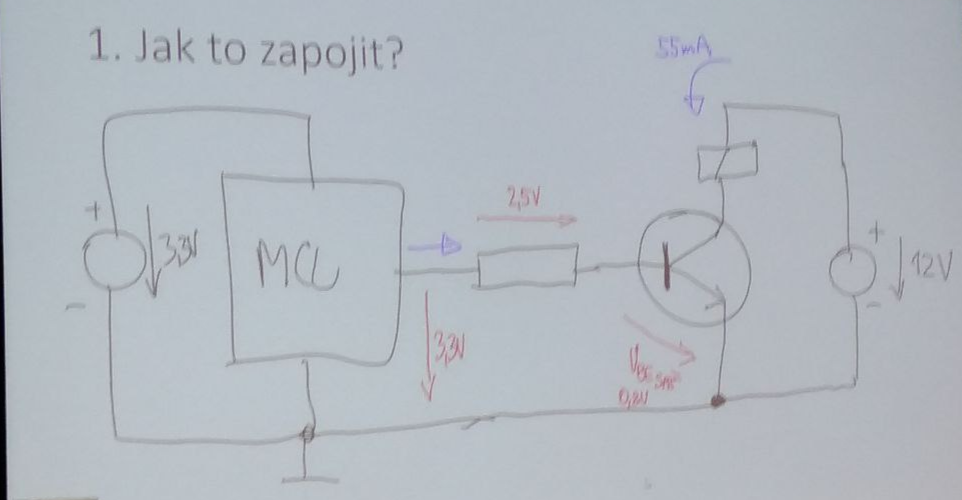 1. Jak to zapojit?
55mA
2,5V
+
3,3V
-
MCU
3,3V
VBE SAT=
0,8V
+
12V
-